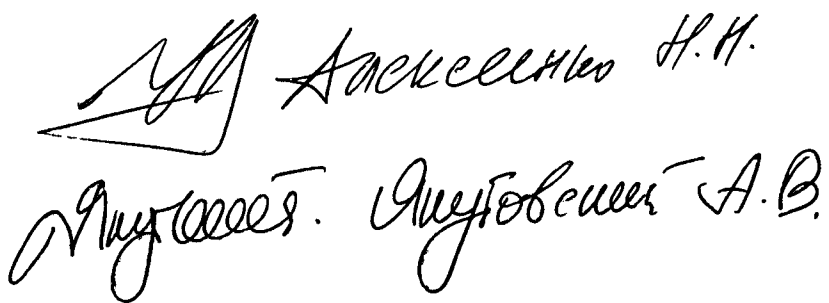 Алексеенко Н.Н.
Якутовский А.В.